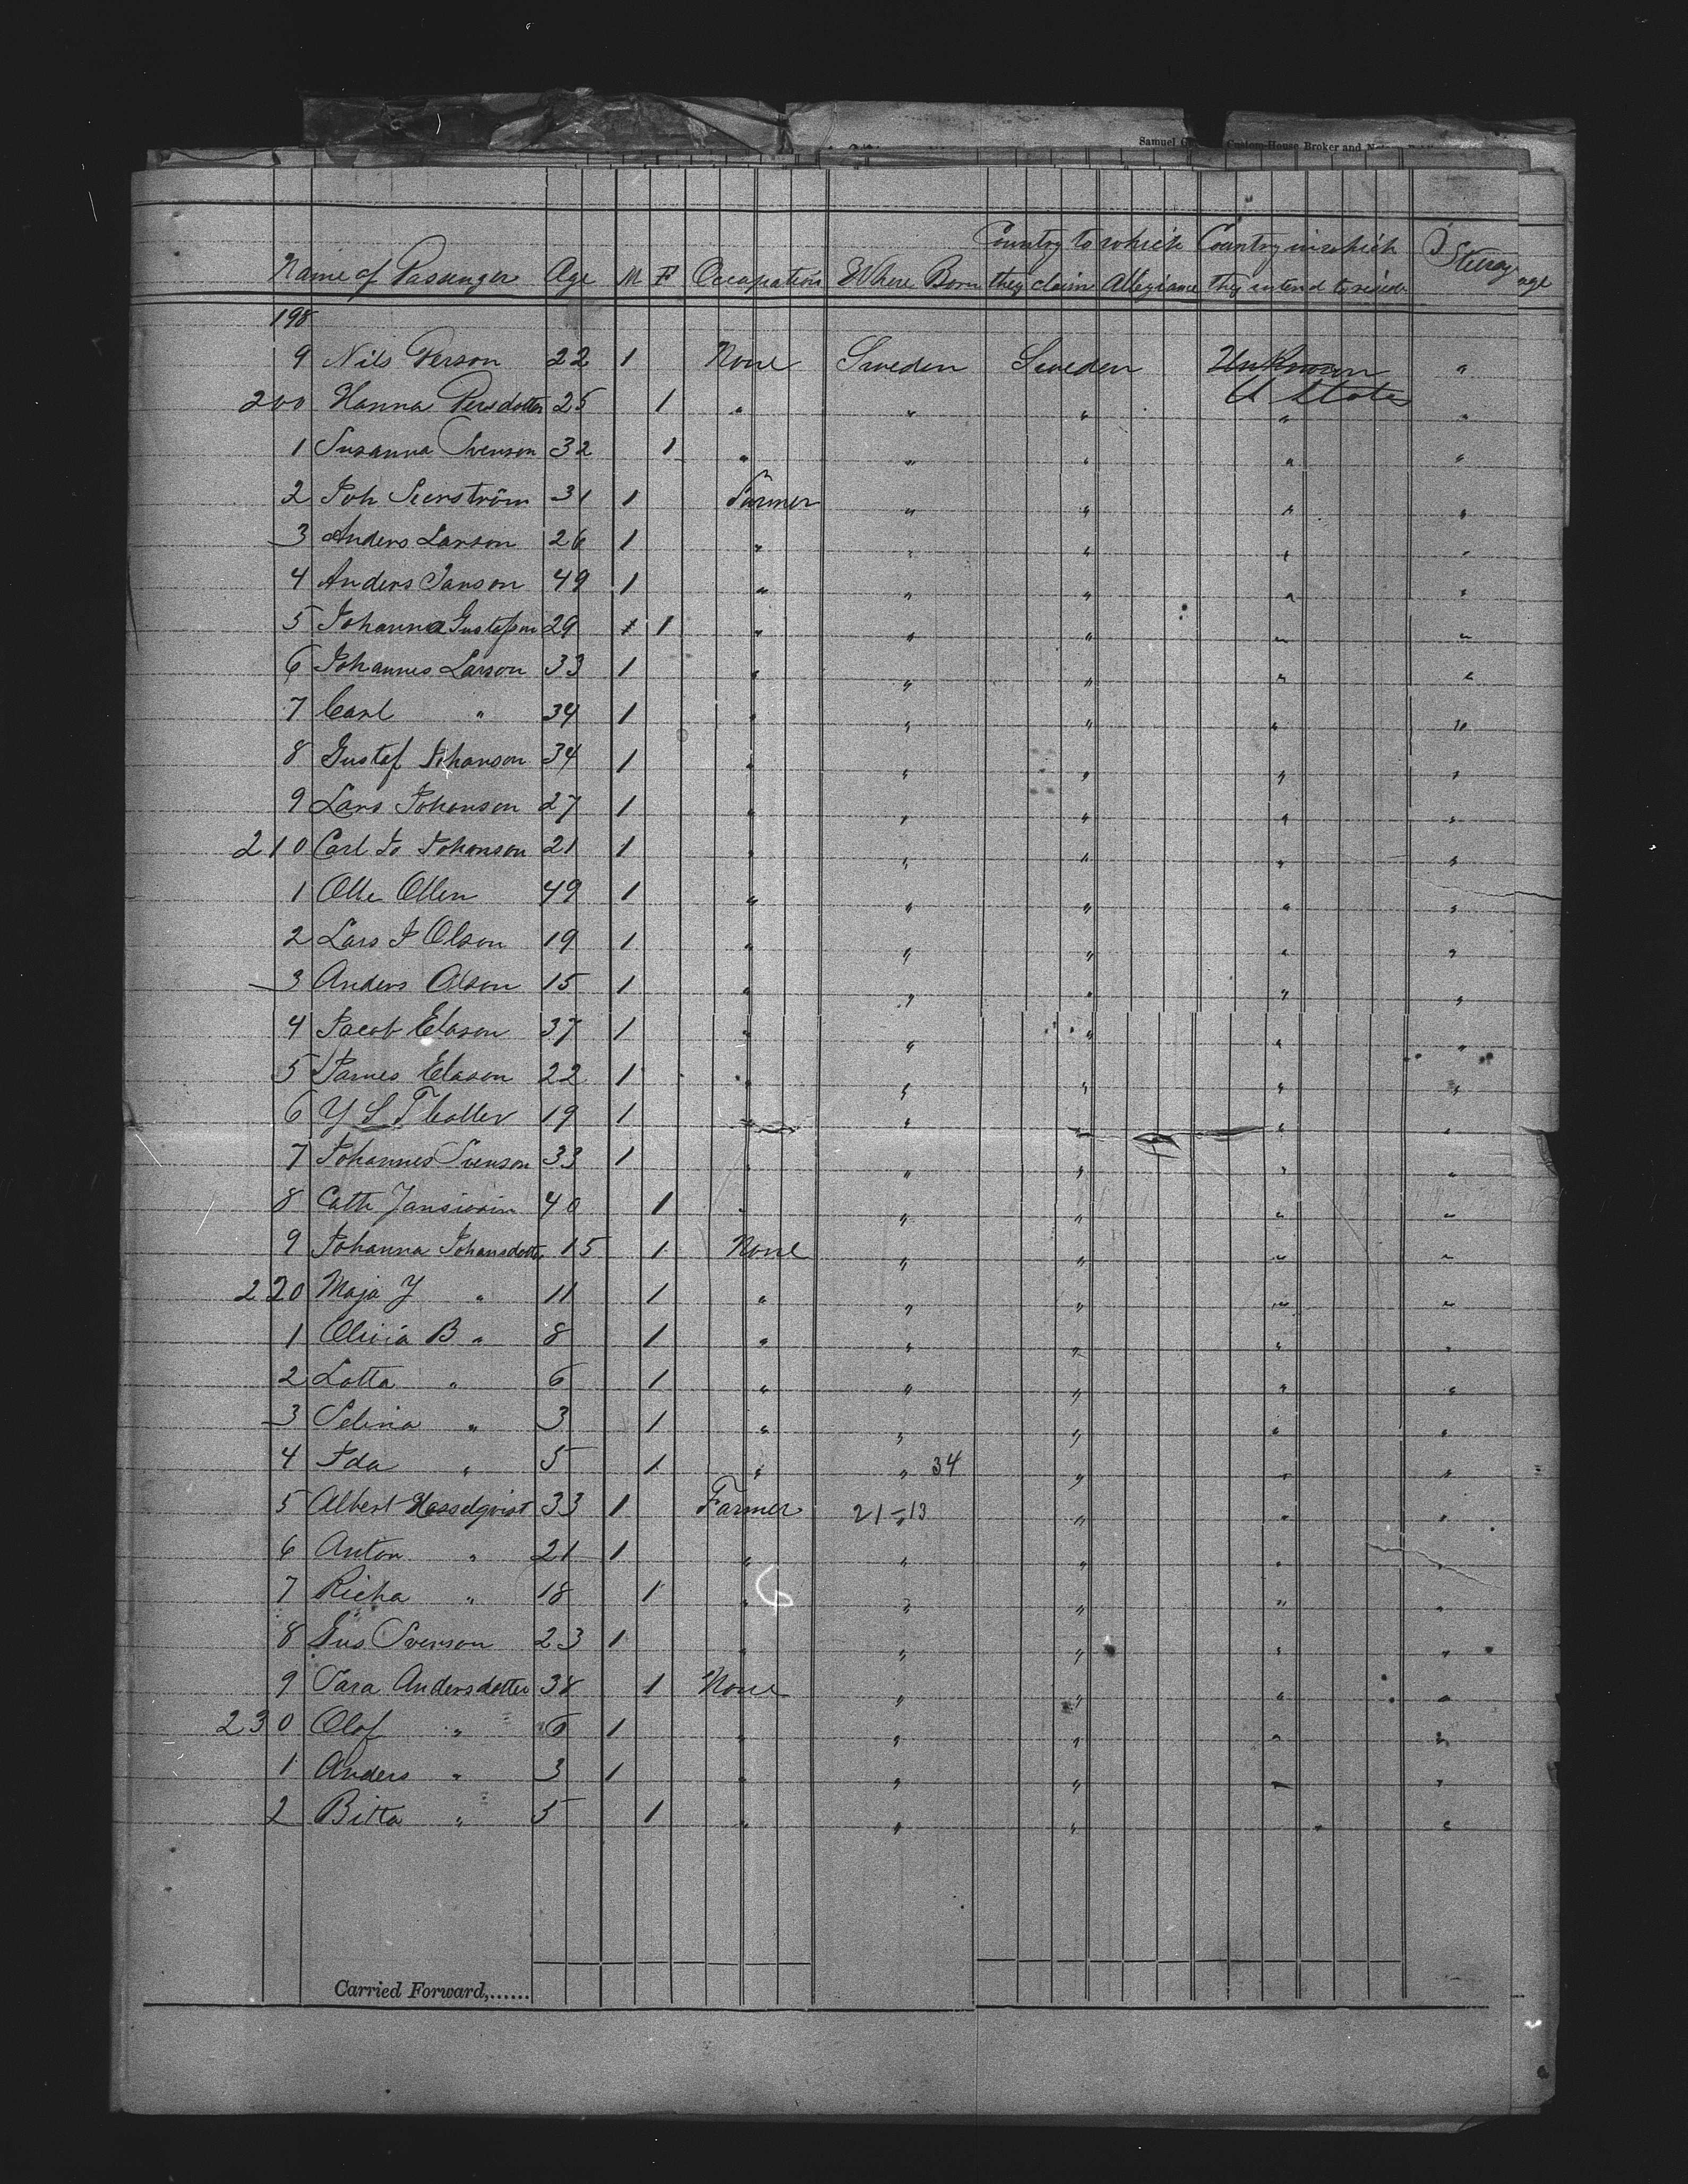 Samuel Custom-House Broker and
Country to which Country in which Steerage
Name of Passenger Age M F Occupation Where Born they claim Allegiance they intend to reside
198
9 Nils Person 22 1 None Sweden Sweden Unknown "
U States
200 Hanna Persdotter 25 1 " " " " "
1 Susanna Svenson 32 1 " " " " "
2 Joh Seerström 31 1 Farmer " " " "
3 Anders Larson 26 1 " " " " "
4 Anders Janson 49 1 " " " " "
5 Johanna Gustafson 29 1 1 " " " " "
6 Johannes Larson 33 1 " " " " "
7 Carl " 34 1 " " " " "
8 Gustaf Johanson 34 1 " " " " "
9 Lars Johanson 27 1 " " " " "
210 Carl Jo Johanson 21 1 " " " " "
1 Olle Ollen 49 1 " " " " "
2 Lars J Olson 19 1 " " " " "
3 Anders Olson 15 1 " " " " "
4 Jacob Elason 37 1 " " " " "
5 James Elason 22 1 " " " " "
6 Y L 19 1 " " " " "
7 Johannes Svenson 33 1 " " " " "
8 Cath 40 1 " " " " "
9 Johanna Johansdotter 15 1 None " " " "
220 Maja J " 11 1 " " " " "
1 Olivia B " 8 1 " " " " "
2 Lotta " 6 1 " " " " "
3 Selina " 3 1 " " " " "
4 Ida " 5 1 " " 34 " " "
5 Albert Hasselqvist 33 1 Farmer 21 - 13 " " "
6 Anton " 21 1 " " " " "
7 Richa " 18 1 " " " " "
8 Gus Svenson 23 1 " " " " "
9 Sara Andersdotter 38 1 None " " " "
230 Olof " 6 1 " " " " "
1 Anders " 3 1 " " " " "
2 Bitta " 5 1 " " " " "
Carried Forward,......